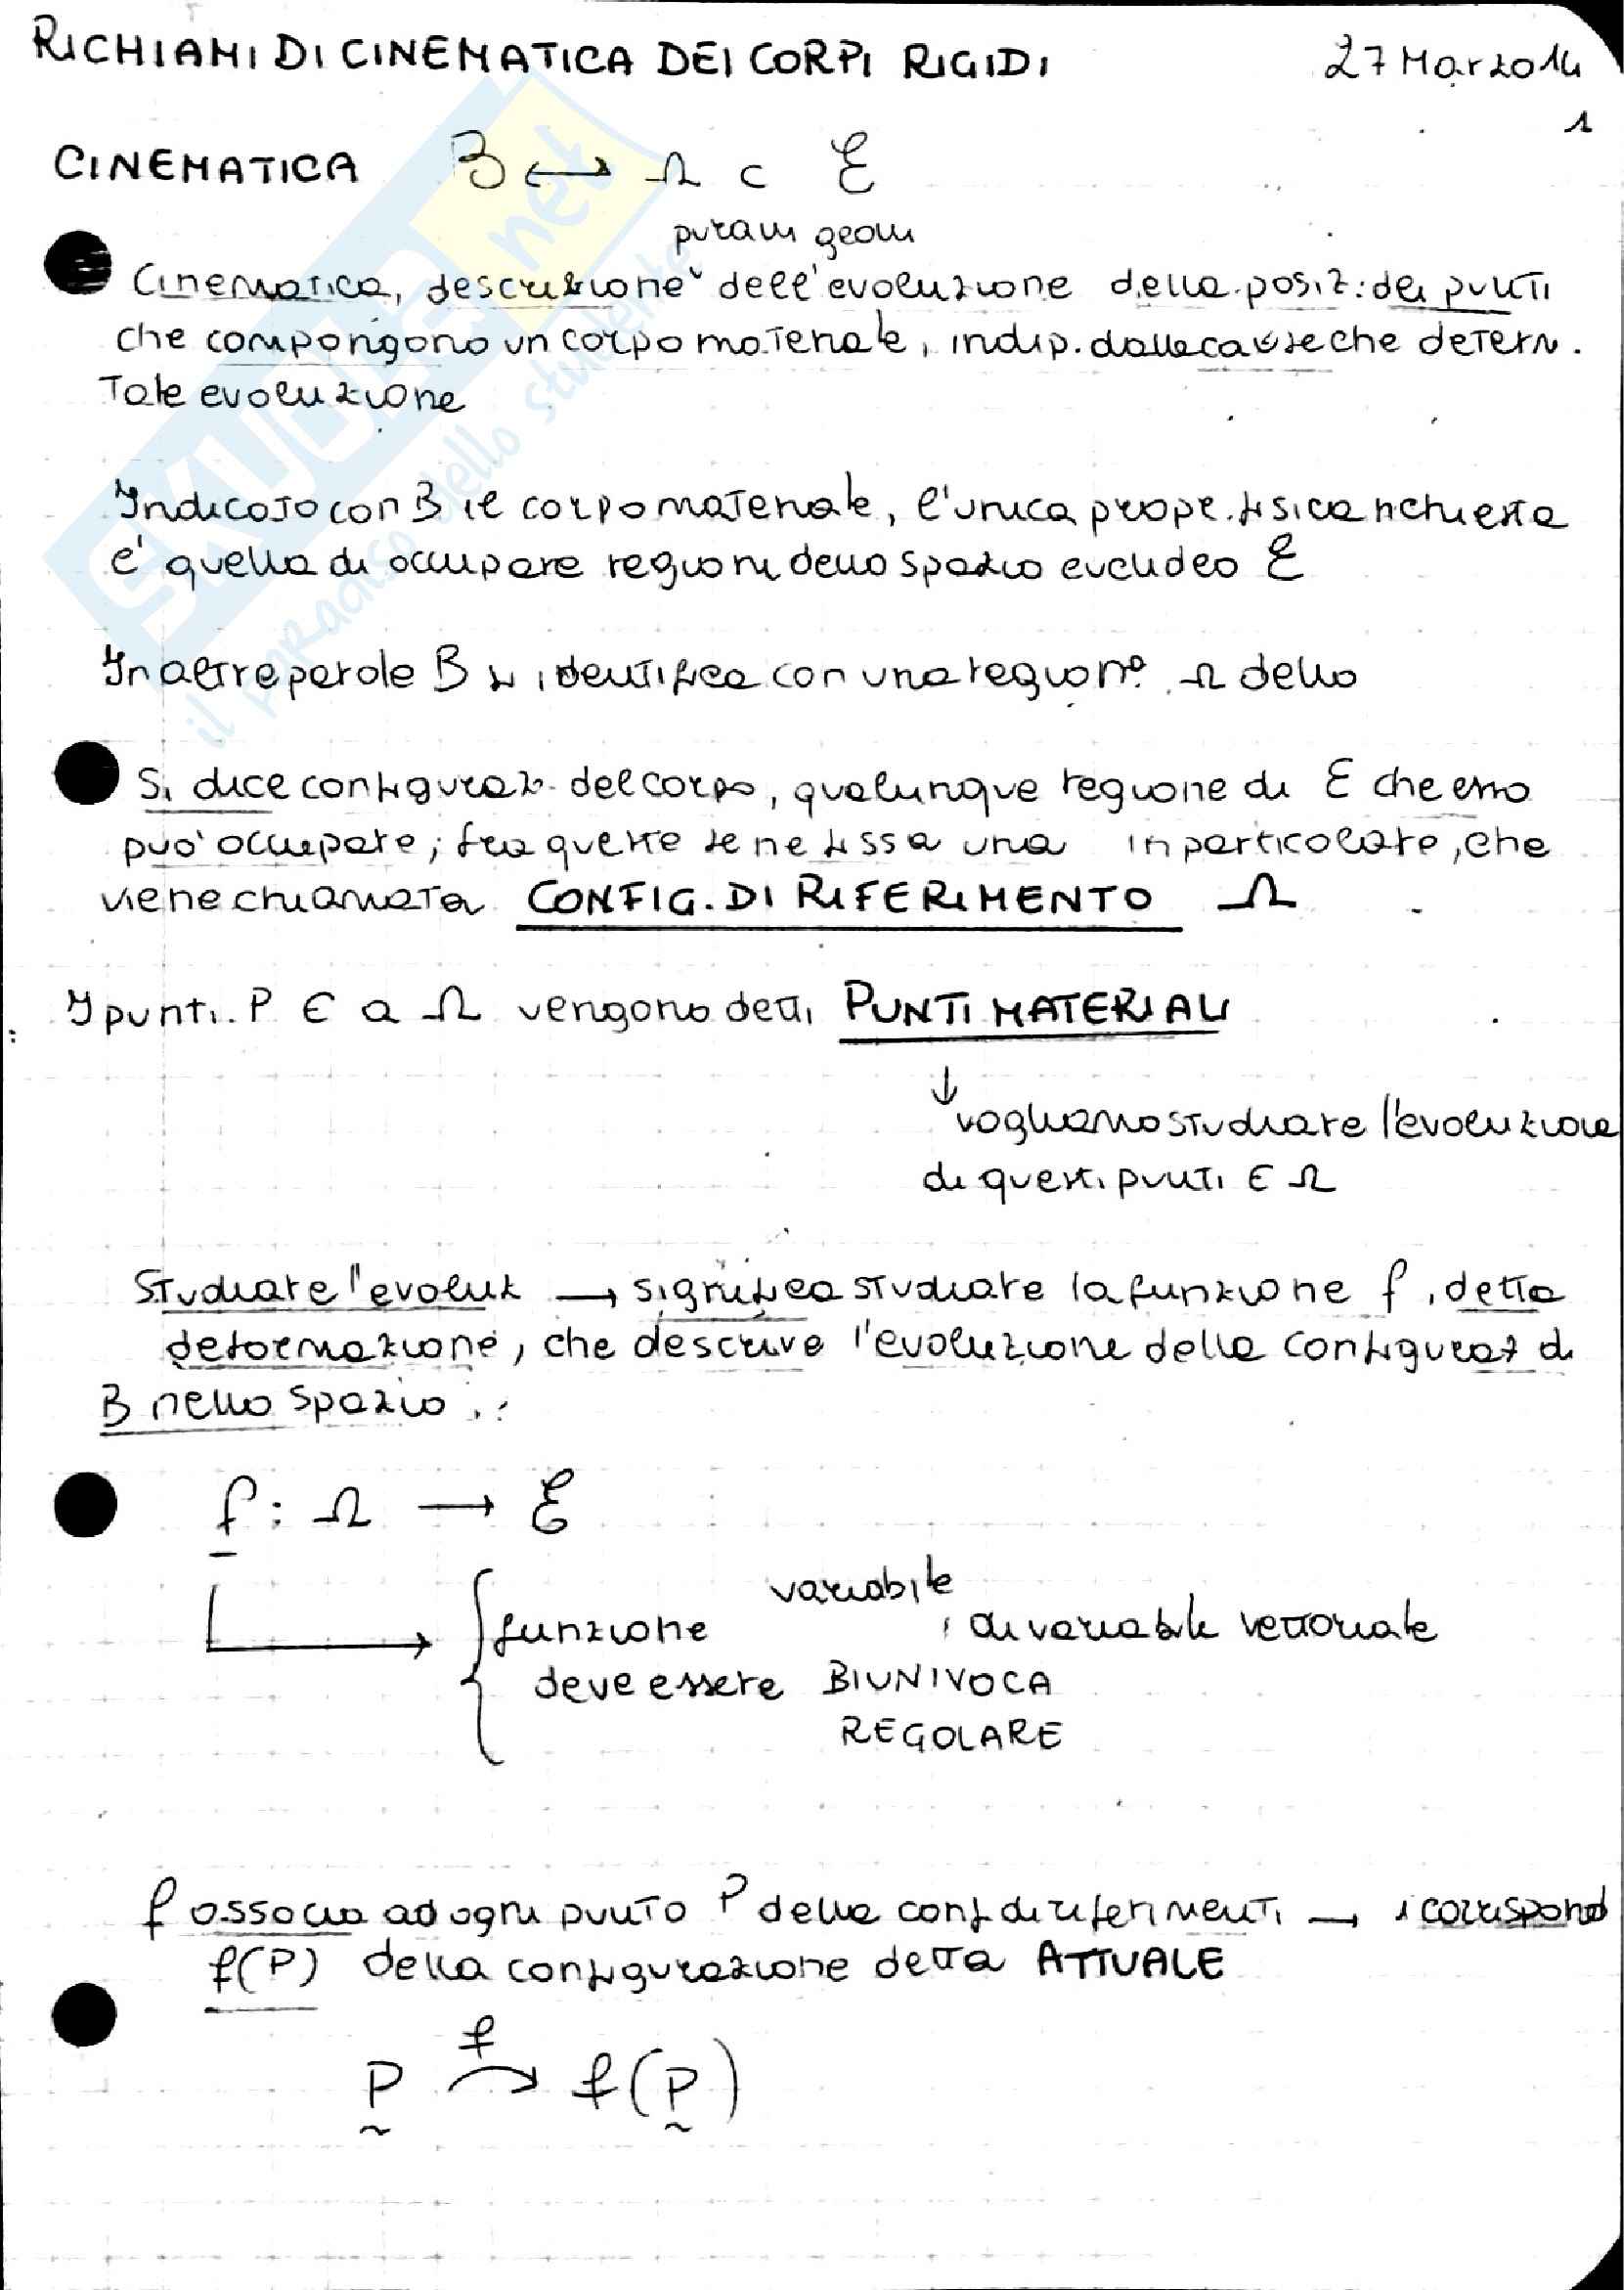 RICHIAMI DI CINEMATICA DEI CORPI RIGIDI 27 Marzo 14
1
CINEMATICA B ↔ Ω ⊂ ℰ
puram geom
Cinematica, descrizione dell'evoluzione della posiz. dei punti
che compongono un corpo materiale, indip. dalle cause che determ.
Tale evoluzione
Indicato con B il corpo materiale, l'unica propr. fisica richiesta
e' quella di occupare regioni dello spazio euclideo ℰ
In altre parole B si identifica con una regione Ω dello
Si dice configuraz. del corpo, qualunque regione di E che esso
puo' occupare; fra queste se ne fissa una in particolare, che
viene chiamata CONFIG. DI RIFERIMENTO Ω
I punti P ∈ a Ω vengono detti PUNTI MATERIALI
↓
vogliamo studiare l'evoluzione
di questi punti ∈ Ω
Studiare l'evoluz → significa studiare la funzione f, detta
deformazione, che descrive l'evoluzione della configuraz di
B nello spazio
f: Ω → ℰ
variabile
funzione , di variabile vettoriale
deve essere BIUNIVOCA
REGOLARE
f associa ad ogni punto P della conf di riferimenti → i corrispond
f(P) della configurazione detta ATTUALE
f
P → f(P)
SKUOLA.net
il paradiso dello studente